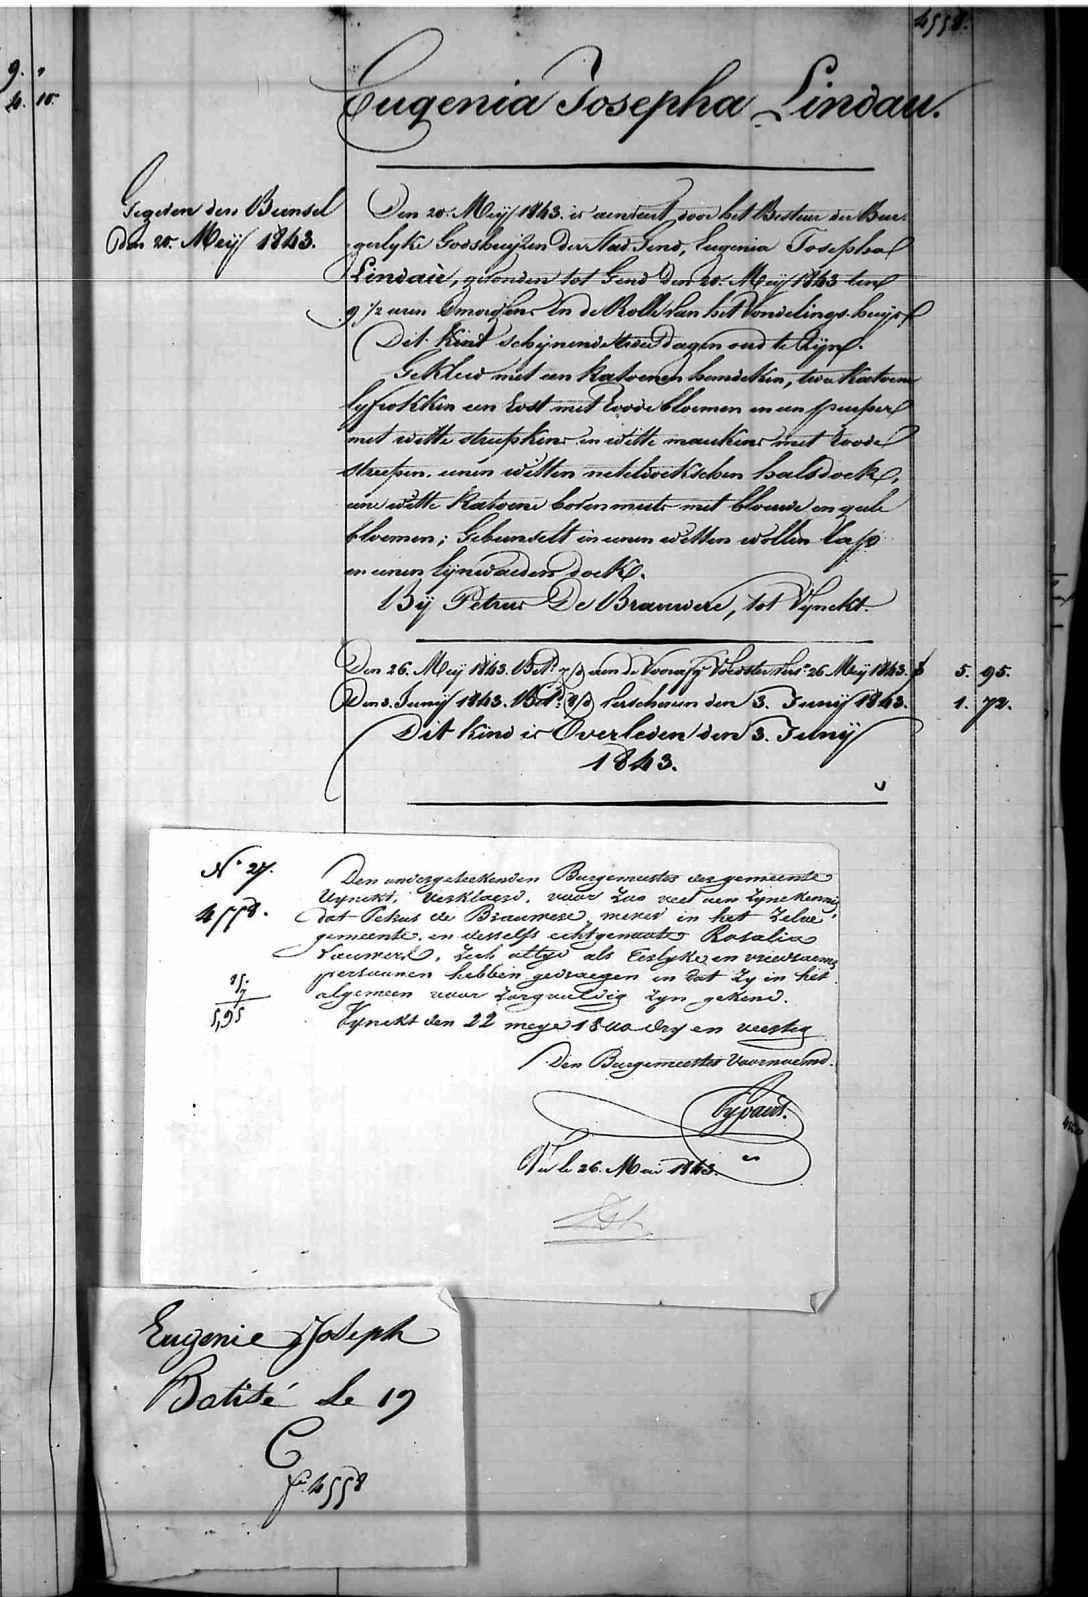 4558.
9. "
4. 10
Eugenia Josepha Lindau.
Gegeven den Bunsel
den 20 Meij 1843.
Den 20 Meij 1843 is aenveert door het Bestuer der Bur-
gerlyke Godshuijzen der Stad Gend, Eugenia Josepha
Lindau, gevonden tot Gend den 20 Meij 1843 ten
9 1/2 uren smorgens in de Rolle van het Vondelings-huijs
Dit kind schijnende twee dagen oud te zijn.
Gekleed met een katoenen hemdeken, twee katoene
lyfrokken een rost met roode bloemen en een purper
met witte streepkens en witte maukens met roode
streepen, eenen witten neteldoekschen halsdoek,
eene witte katoene bovenmuts met blouwe en gele
bloemen; Gebunselt in eenen witten wollen lap
en eenen lijnwaeden doek.
Bij Petrus De Brauwere, tot Vijnckt.
Den 26 Meij 1843. Bet. aen de Voedster 26 Meij 1843. f 5. 95.
Den 3. Junij 1843. Bet. verschenen den 3. Junij 1843. 1. 72.
Dit kind is Overleden den 3. Junij
1843.
N° 27.
4558.
85.
7
5,95
Den ondergeteekenden Burgemeester der gemeente
Vijnckt, verklaerd, voor zoo veel aen zyne kennis,
dat Petrus de Brauwere, in het zelve
gemeente en desselfs echtgenoote Rosalia
Vauwere, zich altyd als eerlyke en
persoonen hebben gedraegen en dat zy in het
algemeen voor zorgvuldig zyn gekend.
Vynckt den 22 meye 18 dry en veertig
Den Burgemeester Voornoemd.
Vu le 26. Mai 1843.
Eugenie Joseph
Batisé Le 19
C
f° 4558